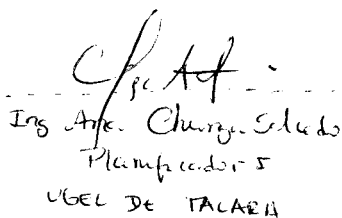 Ing Ana Chunga Salcedo
Planificador I
UGEL DE TALARA